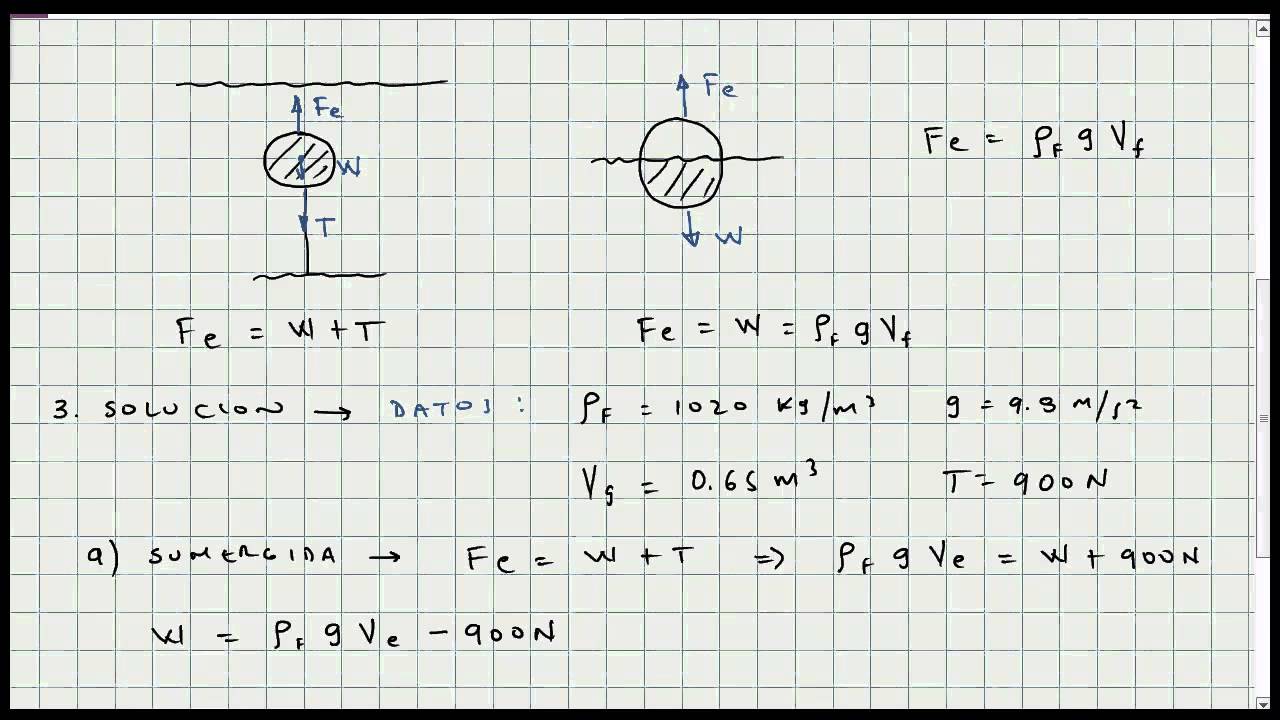 Fe
W
T
Fe
W
Fe = ρF g Vf
Fe = W + T
Fe = W = ρF g Vf
3. SOLUCION → DATOS : ρF = 1020 Kg/m³ g = 9.8 m/s²
Vg = 0.65 m³ T = 900N
a) SUMERGIDA → Fe = W + T => ρF g Ve = W + 900N
W = ρF g Ve - 900N